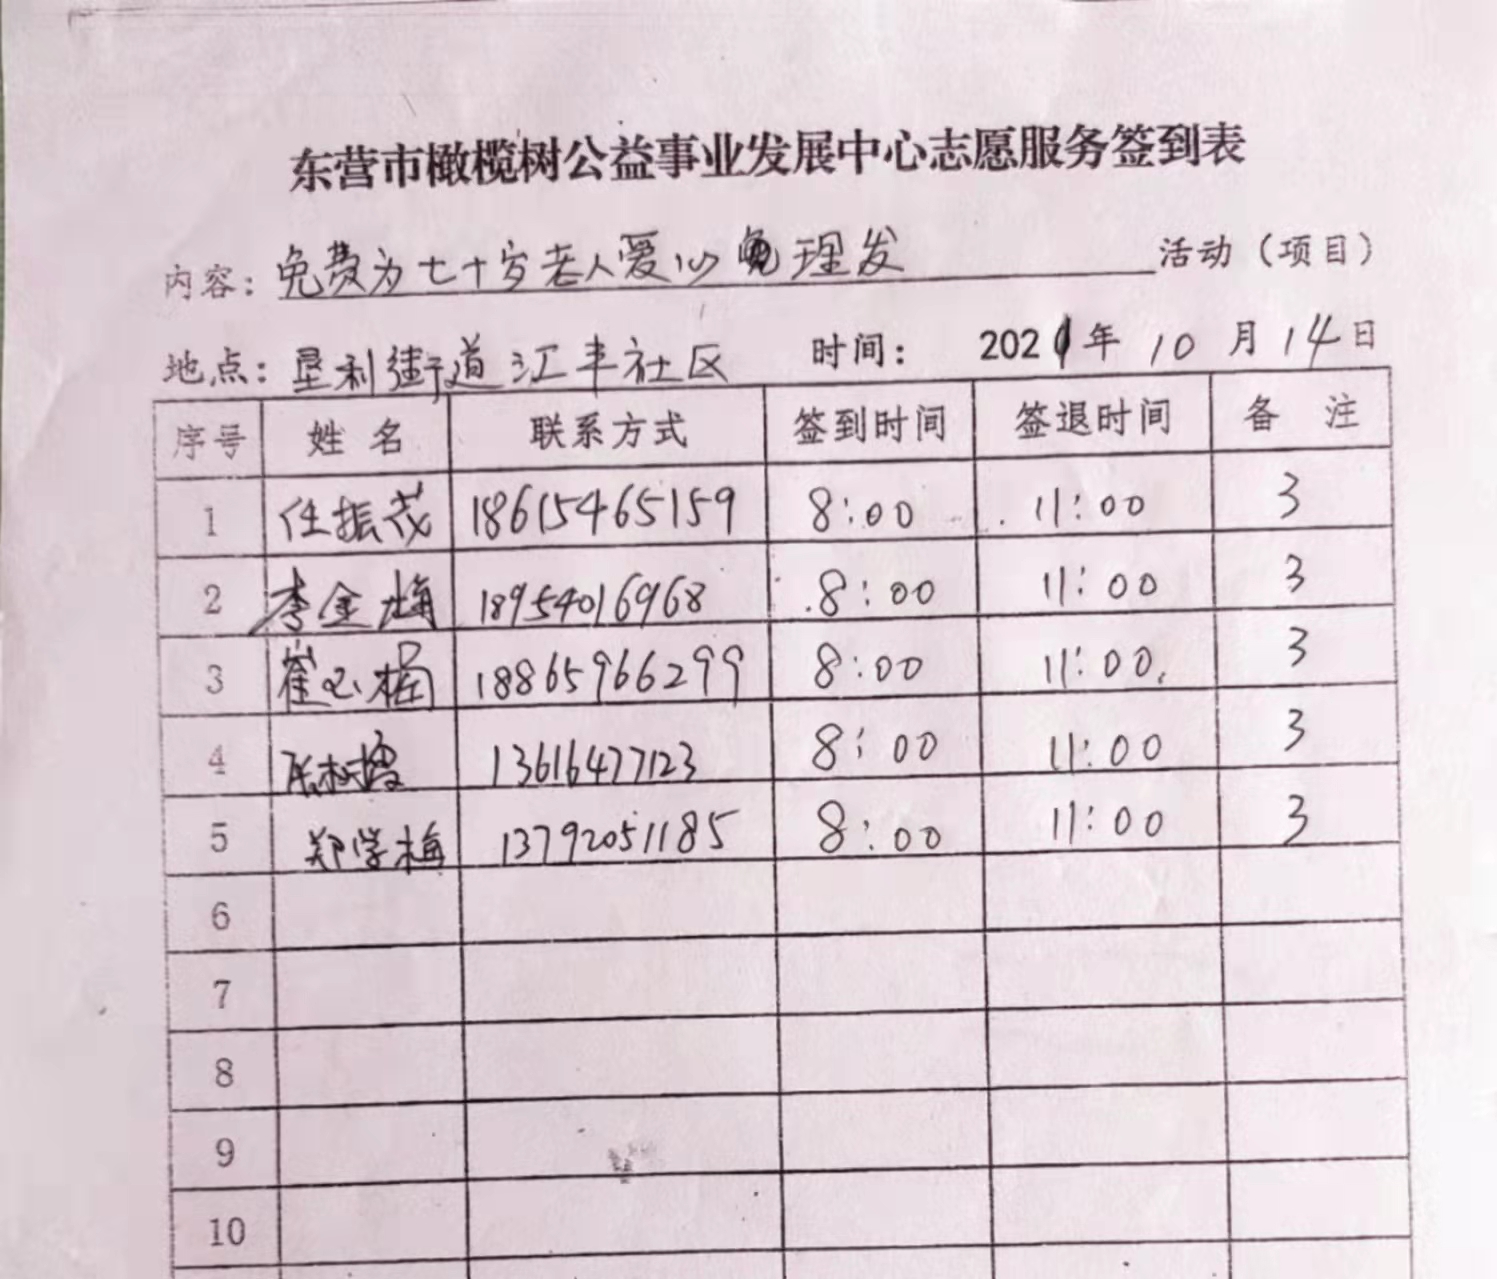 东营市橄榄树公益事业发展中心志愿服务签到表
内容：免费为七十岁老人爱心理发 活动（项目）
地点：垦利街道江丰社区 时间： 2021年 10 月 14日
序号 姓 名 联系方式 签到时间 签退时间 备 注
1 任振茂 18615465159 8:00 11:00 3
2 李金梅 18954016968 8:00 11:00 3
3 崔 18865966299 8:00 11:00 3
4 张树 13616477123 8:00 11:00 3
5 郑学梅 13792051185 8:00 11:00 3
6
7
8
9
10